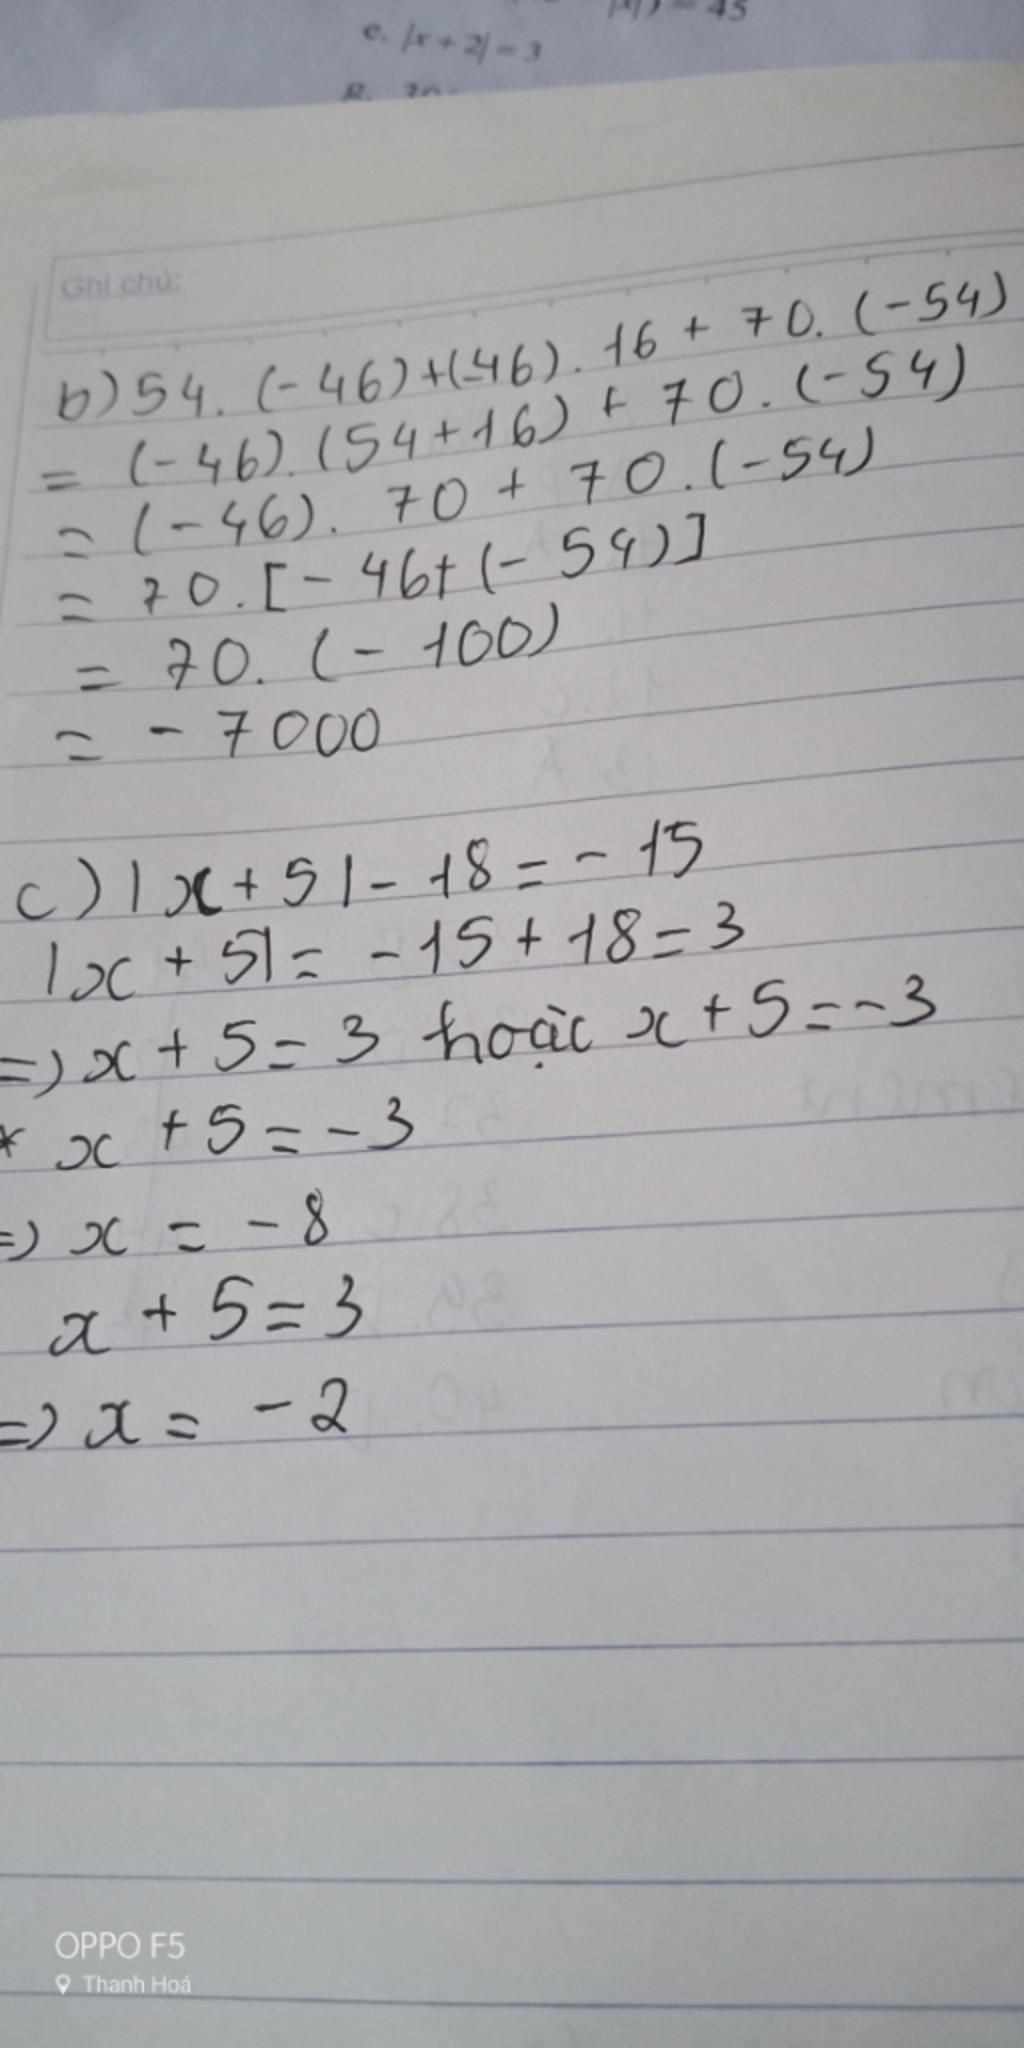 = 45
e. |x + 2| = 3
Ghi chú:
b) 54. (-46)+(-46). 16 + 70. (-54)
= (-46). (54+16) + 70. (-54)
= (-46). 70 + 70. (-54)
= 70. [-46+(-54)]
= 70. (-100)
= -7000
c) |x+5|-18=-15
|x+5|= -15+18=3
=> x+5=3 hoặc x+5=-3
* x+5=-3
=> x = -8
x+5=3
=> x = -2
OPPO F5
Thanh Hoá